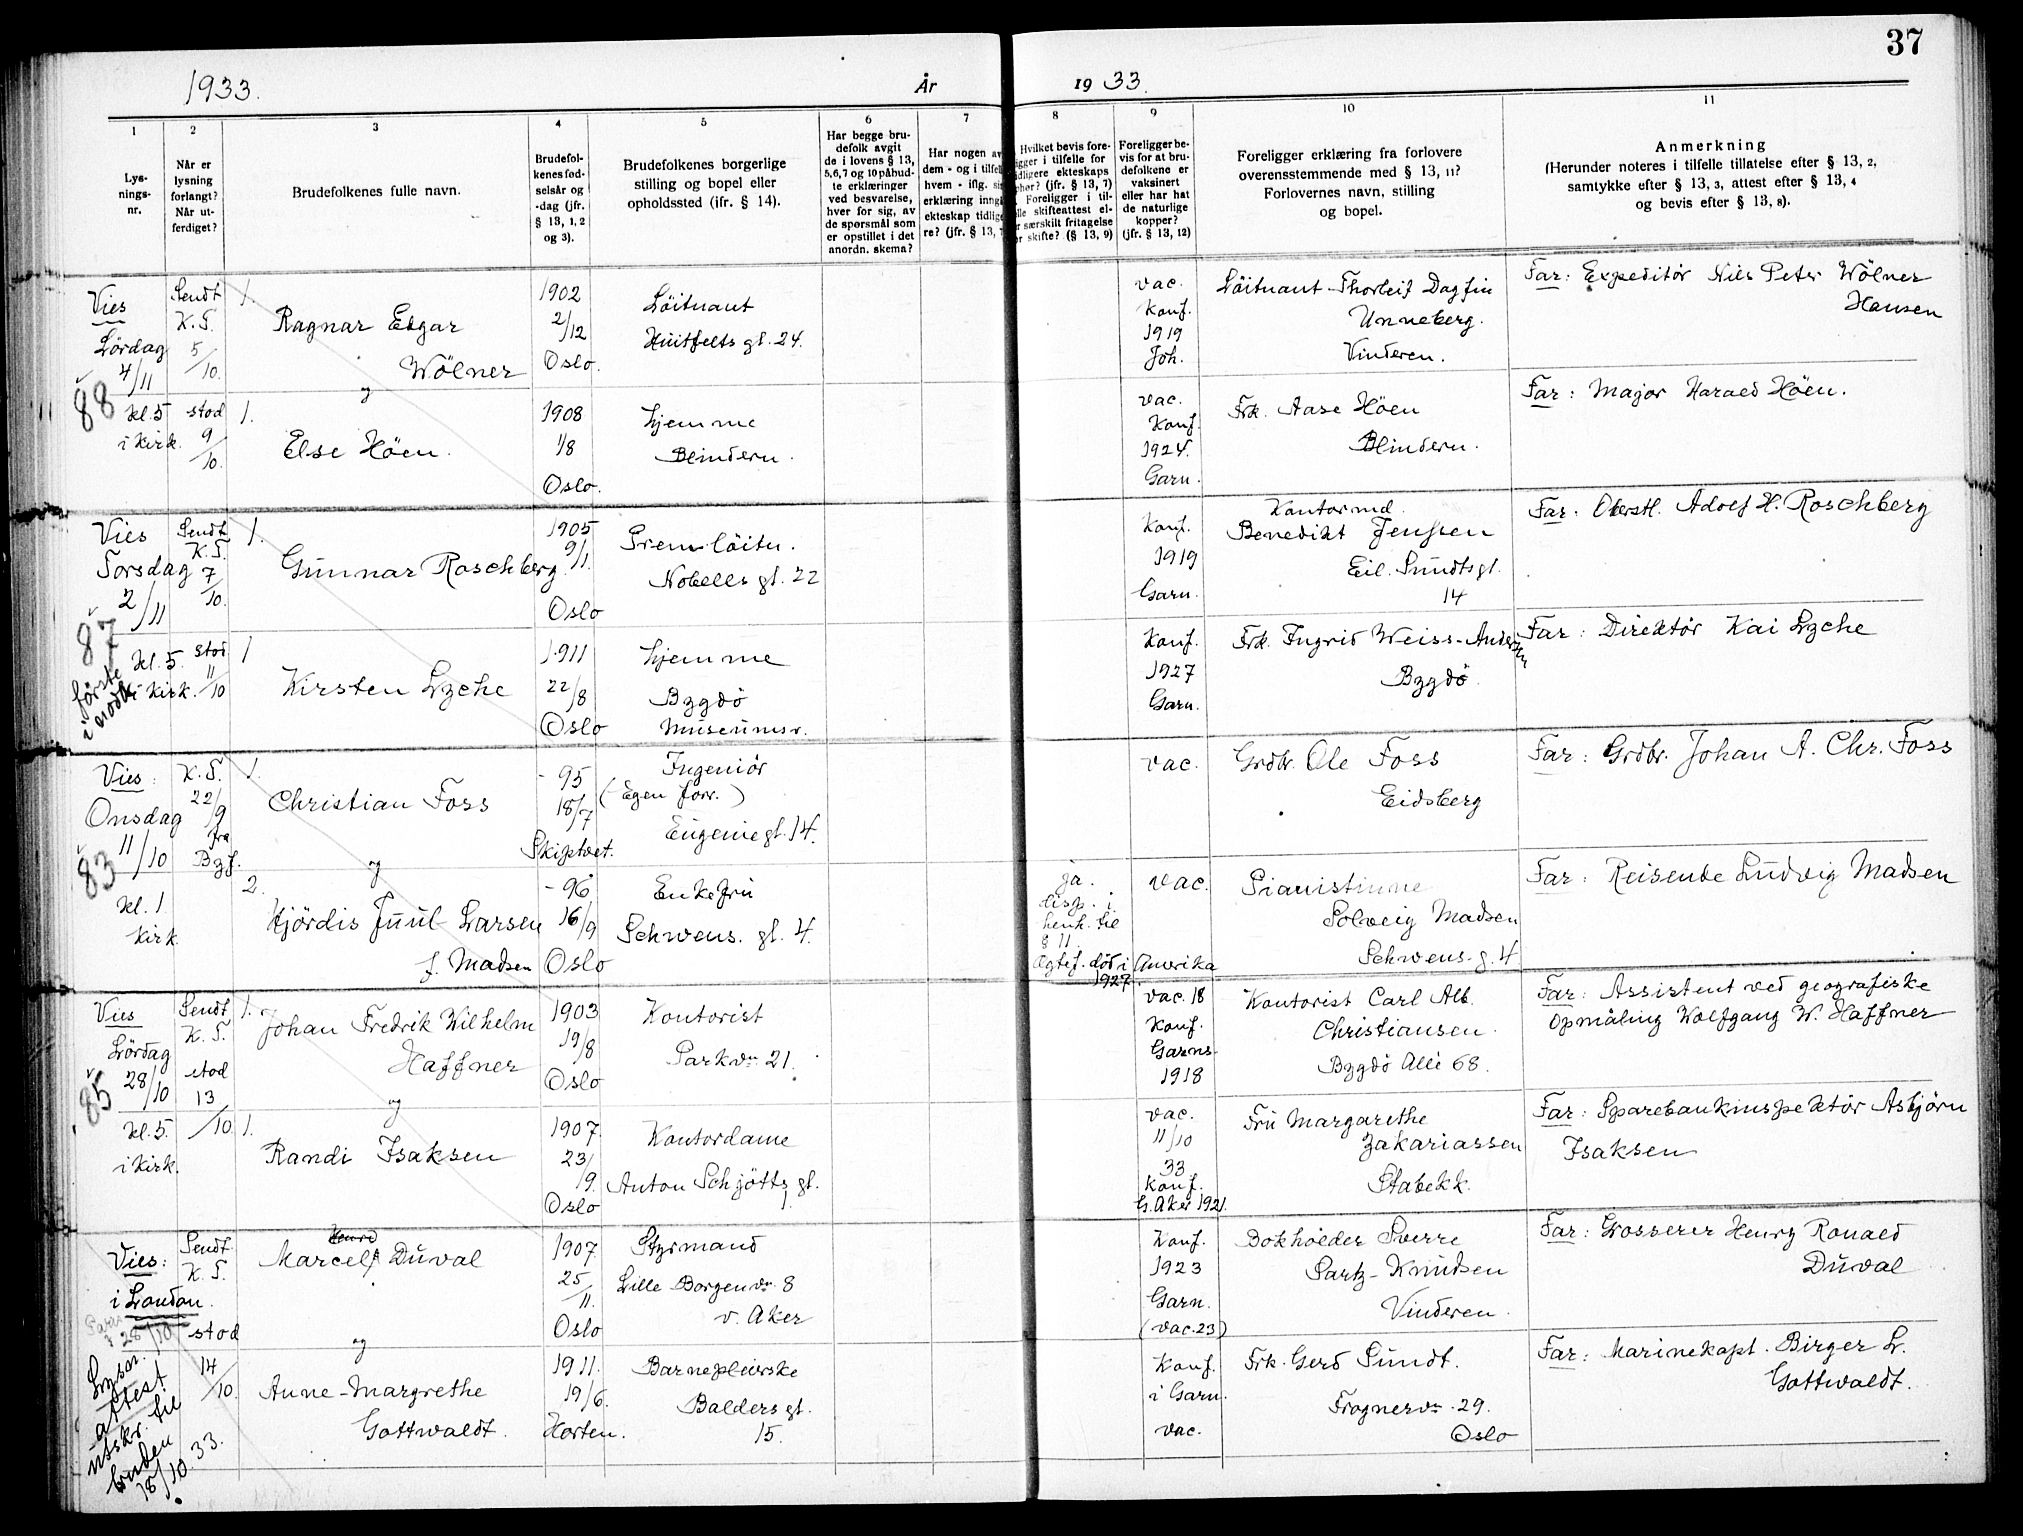 37
1933.
År
1933.
1
2
3
4
5
6
7
8
9
10
11
Lys-
nings-
nr.
Når er
lysning
forlangt?
Når ut-
ferdiget?
Brudefolkenes fulle navn.
Brudefol-
kenes fød-
selsår og
-dag (jfr.
§ 13, 1, 2
og 3).
Brudefolkenes borgerlige
stilling og bopel eller
opholdssted (ifr. § 14).
Har begge bru-
defolk avgit
de i lovens § 13,
5,6,7 og 10 påbud-
te erklæringer
ved besvarelse,
hver for sig, av
de spørsmål som
er opstillet i det
anordn. skema?
Har nogen av
dem - og i tilfelle
hvem - iflg.
erklæring inngå
ekteskap tidlige
re? (jfr. § 13,
Hvilket bevis fore-
igger i tilfelle for
idligere ekteskaps
pher? (jfr. § 13, 7)
Foreligger i til-
lle skifteattest el-
r særskilt fritagelse
or skifte? (§ 13, 9)
Foreligger be-
vis for at bru-
defolkene er
vaksinert
eller har hat
de naturlige
kopper?
(jfr. § 13, 12)
Foreligger erklæring fra forlovere
overensstemmende med § 13, 11?
Forlovernes navn, stilling
og bopel.
Anmerkning
(Herunder noteres i tilfelle tillatelse efter § 13, 2,
samtykke efter § 13, 3, attest efter § 13, 4
og bevis efter § 13, 8).
Vies
Lördag
4/11
88
kl. 5
i Kirk.
Sendt
K.T.
5/10.
stod
9/10.
1.
Ragnar Edgar
Wölner
og
1.
Else Höen.
1902
2/12
Oslo.
1908
1/8
Oslo.
Löitnant
Huitfelts gt. 24.
hjemme
Blindern.
vac.
Konf.
1919
Joh.
vac.
Konf.
1924.
Garn.
Löitnant Thorleif Dagfin
Unneberg.
Vinderen.
Frk. Aase Höen
Blindern.
Far: Expeditör Nils Peter Wölner
Hansen
Far: Major Harald Höen.
Vies
Torsdag
2/11
87
kl. 5.
i Kirk.
første
i nodb.
Sendt
K.T.
7/10.
stod
11/10
1.
Gunnar Roschberg
1
Kirsten Lyche
1905
9/1.
Oslo
1911
22/8
Oslo
Prem.löitn.
Nobells gt. 22
hjemme
Bygdö
Museumsv.
Konf.
1919
Garn.
Konf.
1927
Garn.
Kontormd.
Benedikt Jenssen
Eil. Sundtsgt.
14
Frk. Ingrid Weiss-Andersen
Bygdö
Far: Oberstl. Adolf H. Roschberg
Far: Direktör Kai Lyche
Vies:
Onsdag
11/10
83
kl. 1
kirk.
K.T.
22/9
fra
Bgf.
1.
Christian Foss
og
2.
Hjördis Juul-Larsen
f. Madsen
- 95
18/7
Skiptvet.
- 96
16/9
Oslo
Ingeniör
(Egen forr.)
Eugeniegt. 14.
Enkefru
Schwens. gt. 4.
ja.
disp. i
henh. til
§ 11.
Ægtef. död i Amerika
1927.
vac.
vac.
Grdbr. Ole Foss
Eidsberg
Pianistinne
Solveig Madsen
Schwens. g. 4
Far: Grdbr. Johan A. Chr. Foss
Far: Reisende Ludvig Madsen
Vies
Lördag
28/10
85
kl. 5.
i Kirk.
Sendt
K.T.
stod
13/10
1.
Johan Fredrik Wilhelm
Haffner
og
1.
Randi Isaksen
1903
19/8
Oslo
1907
23/9.
Oslo
Kontorist
Parkvn. 21.
Kontordame
Anton Schjötts gt.
1.
vac. 18
Konf.
Garns.
1918
vac.
11/10
33
Konf.
G. Aker 1921.
Kontorist Carl Alb.
Christiansen.
Bygdö Allé 68.
Fru Margarethe
Zakariassen
Stabekk.
Far: Assistent ved geografiske
Opmåling Wolfgang W. Haffner
Far: Sparebankinspektör Asbjörn
Isaksen
Vies:
i London.
Paris
28/10
Lysn.
attest
utskr. til
bruden
18/10 33.
Sendt
K.T.
stod
14/10.
Henri
Marcel Duval
og
Anne-Margrethe
Gottwaldt.
1907
25/11.
Oslo
1911.
19/6.
Horten.
Styrmand
Lille Borgen vn. 8
v. Aker
Barnepleirske
Balders gt.
15.
Konf.
1923
Garn.
(vac. 23)
Konf.
i Garn.
vac.
Bokholder Sverre
Partz-Knudsen
Vinderen.
Frk. Gerd Sundt.
Frognervn. 29.
Oslo
Far: Grosserer Henry Ronald
Duval
Far: Marinekapt. Birger L.
Gottwaldt.